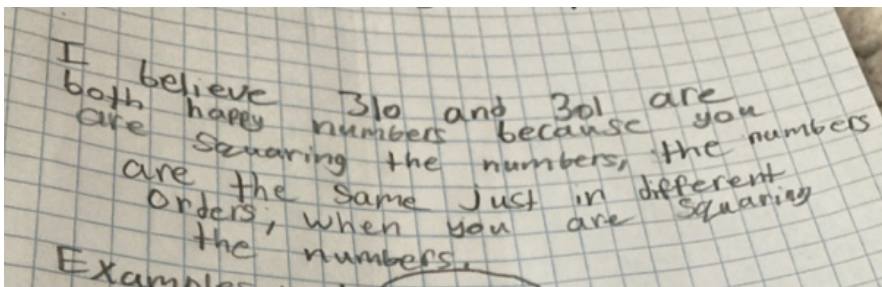 I believe 310 and 301 are
both happy numbers because you
are squaring the numbers, the numbers
are the same just in different
orders, when you are squaring
the numbers.
Examples